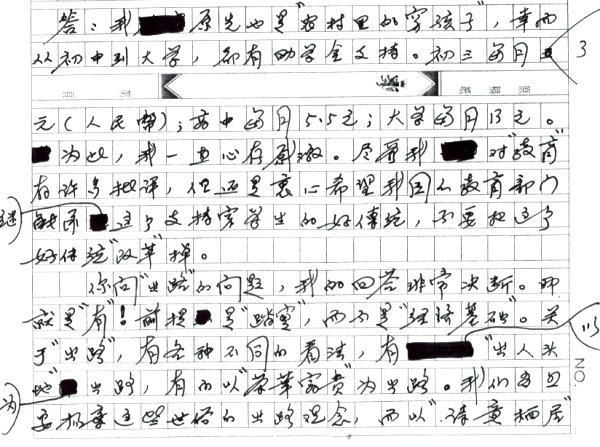 答：我原先也是“农村里的穷孩子”，幸而
从初中到大学，都有助学金支持。初三每月 3
元（人民币）；高中每月5.5元；大学每月13元。
为此，我一直心存感激。尽管我对“教育”
有许多批评，但还是衷心希望我国的教育部门
继 能 这个支持穷学生的好传统，不要把这个
好传统“改革”掉。
你问“出路”的问题，我的回答非常决断。那
就是“有”！前提是“踏实”，而不是“经济基础”。关
于“出路”，有各种不同的看法，有以“出人头
地”为出路，有的以“荣华富贵”为出路。我们应
要 这些世俗的出路观念，而以“诗意栖居”
NO.